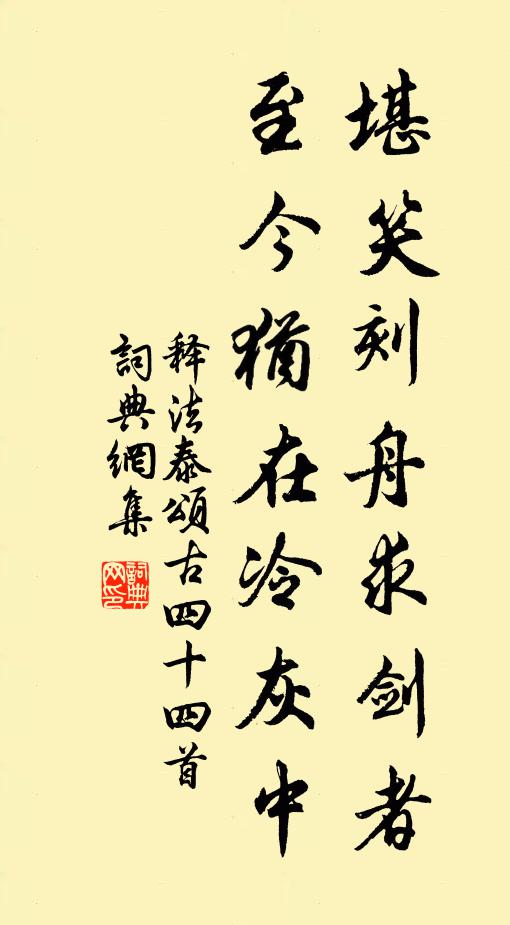 堪笑刻舟求剑者
至今猶在冷灰中
释法泰頌古四十四首
詞典網集
詞典
网印